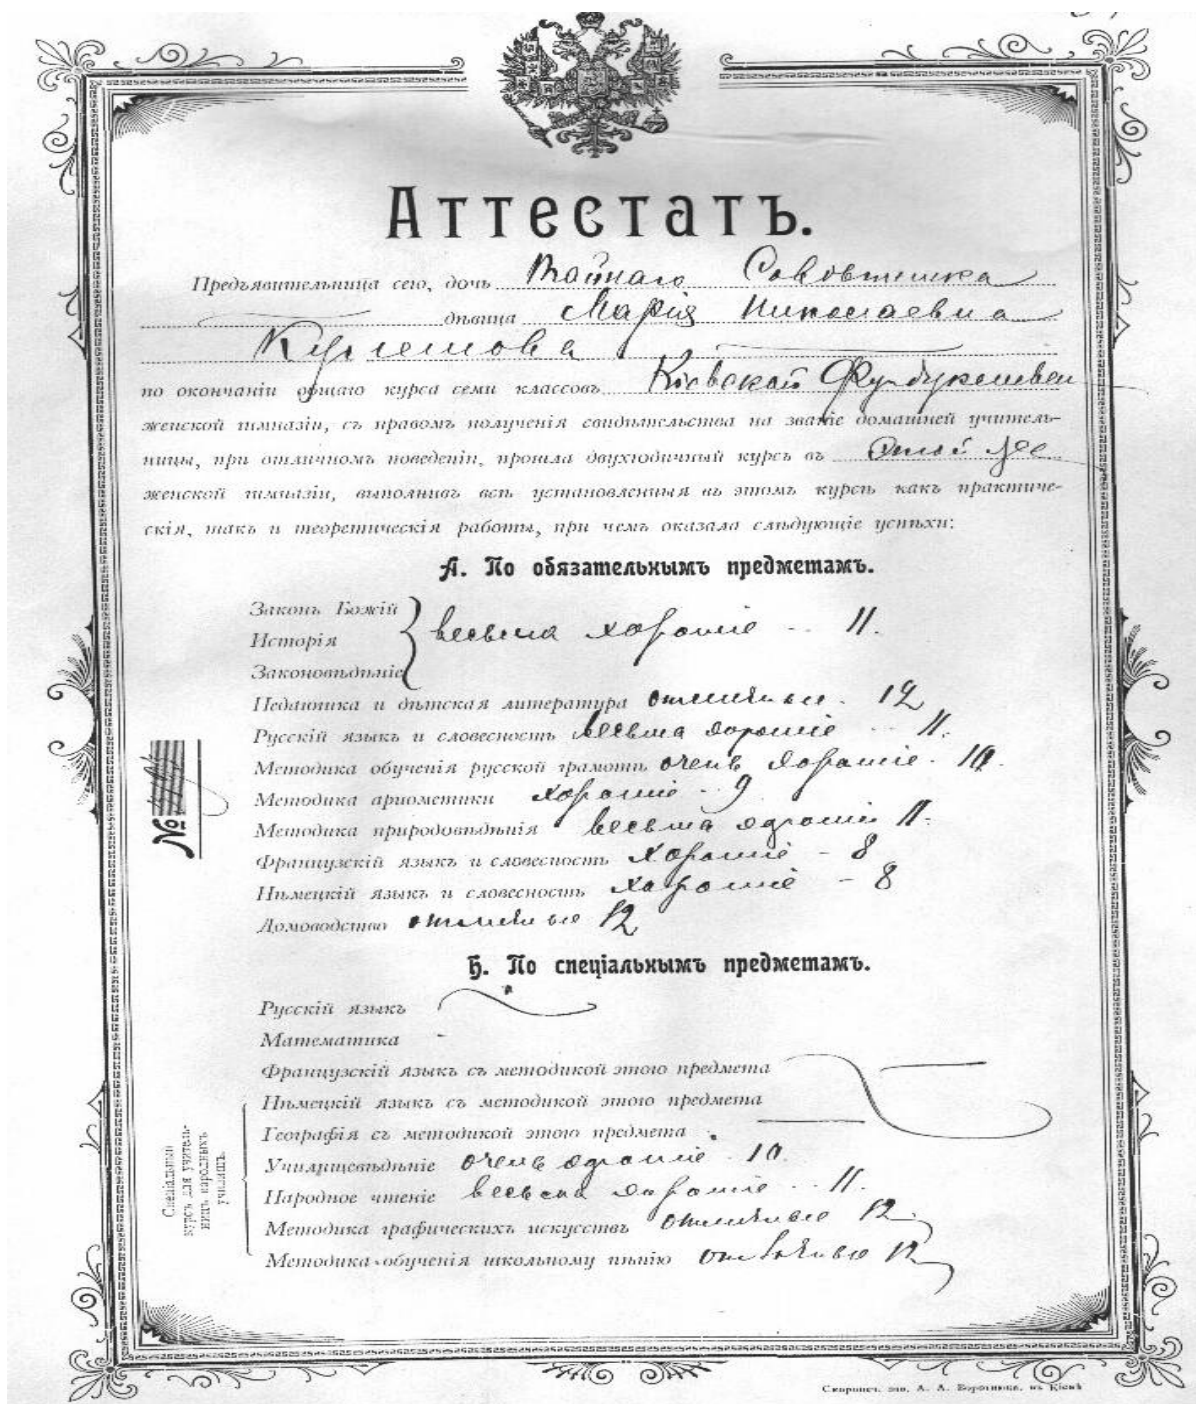 Аттестатъ.
Предъявительница сего, дочь Тайнаго Совѣтника
дѣвица Марія Николаевна
по окончаніи общаго курса семи классовъ Кіевской Фундуклеевск
женской гимназіи, съ правомъ полученія свидѣтельства на званіе домашней учитель-
ницы, при отличномъ поведеніи, прошла двухгодичный курсъ въ этой же
женской гимназіи, выполнивъ всѣ установленныя въ этомъ курсѣ какъ практиче-
скія, такъ и теоретическія работы, при чемъ оказала слѣдующіе успѣхи:
А. По обязательнымъ предметамъ.
Законъ Божій
Исторія весьма хорошіе - 11.
Законовѣдѣніе
Педагогика и дѣтская литература отличные - 12
Русскій языкъ и словесность весьма хорошіе - 11.
Методика обученія русской грамотѣ очень хорошіе - 10.
Методика ариѳметики хорошіе - 9
Методика природовѣдѣнія весьма хорошіе 11.
Французскій языкъ и словесность хорошіе - 8
Нѣмецкій языкъ и словесность хорошіе - 8
Домоводство отличные 12
№
Б. По спеціальнымъ предметамъ.
Русскій языкъ
Математика
Французскій языкъ съ методикой этого предмета
Нѣмецкій языкъ съ методикой этого предмета
Географія съ методикой этого предмета
Спеціальный
курсъ для учитель-
ницъ народныхъ
училищъ.
Училищевѣдѣніе очень хорошіе - 10.
Народное чтеніе весьма хорошіе - 11.
Методика графическихъ искусствъ отличные 12
Методика обученія школьному пѣнію отличные 12
Скоропеч. эта. А. А. въ Кіевѣ